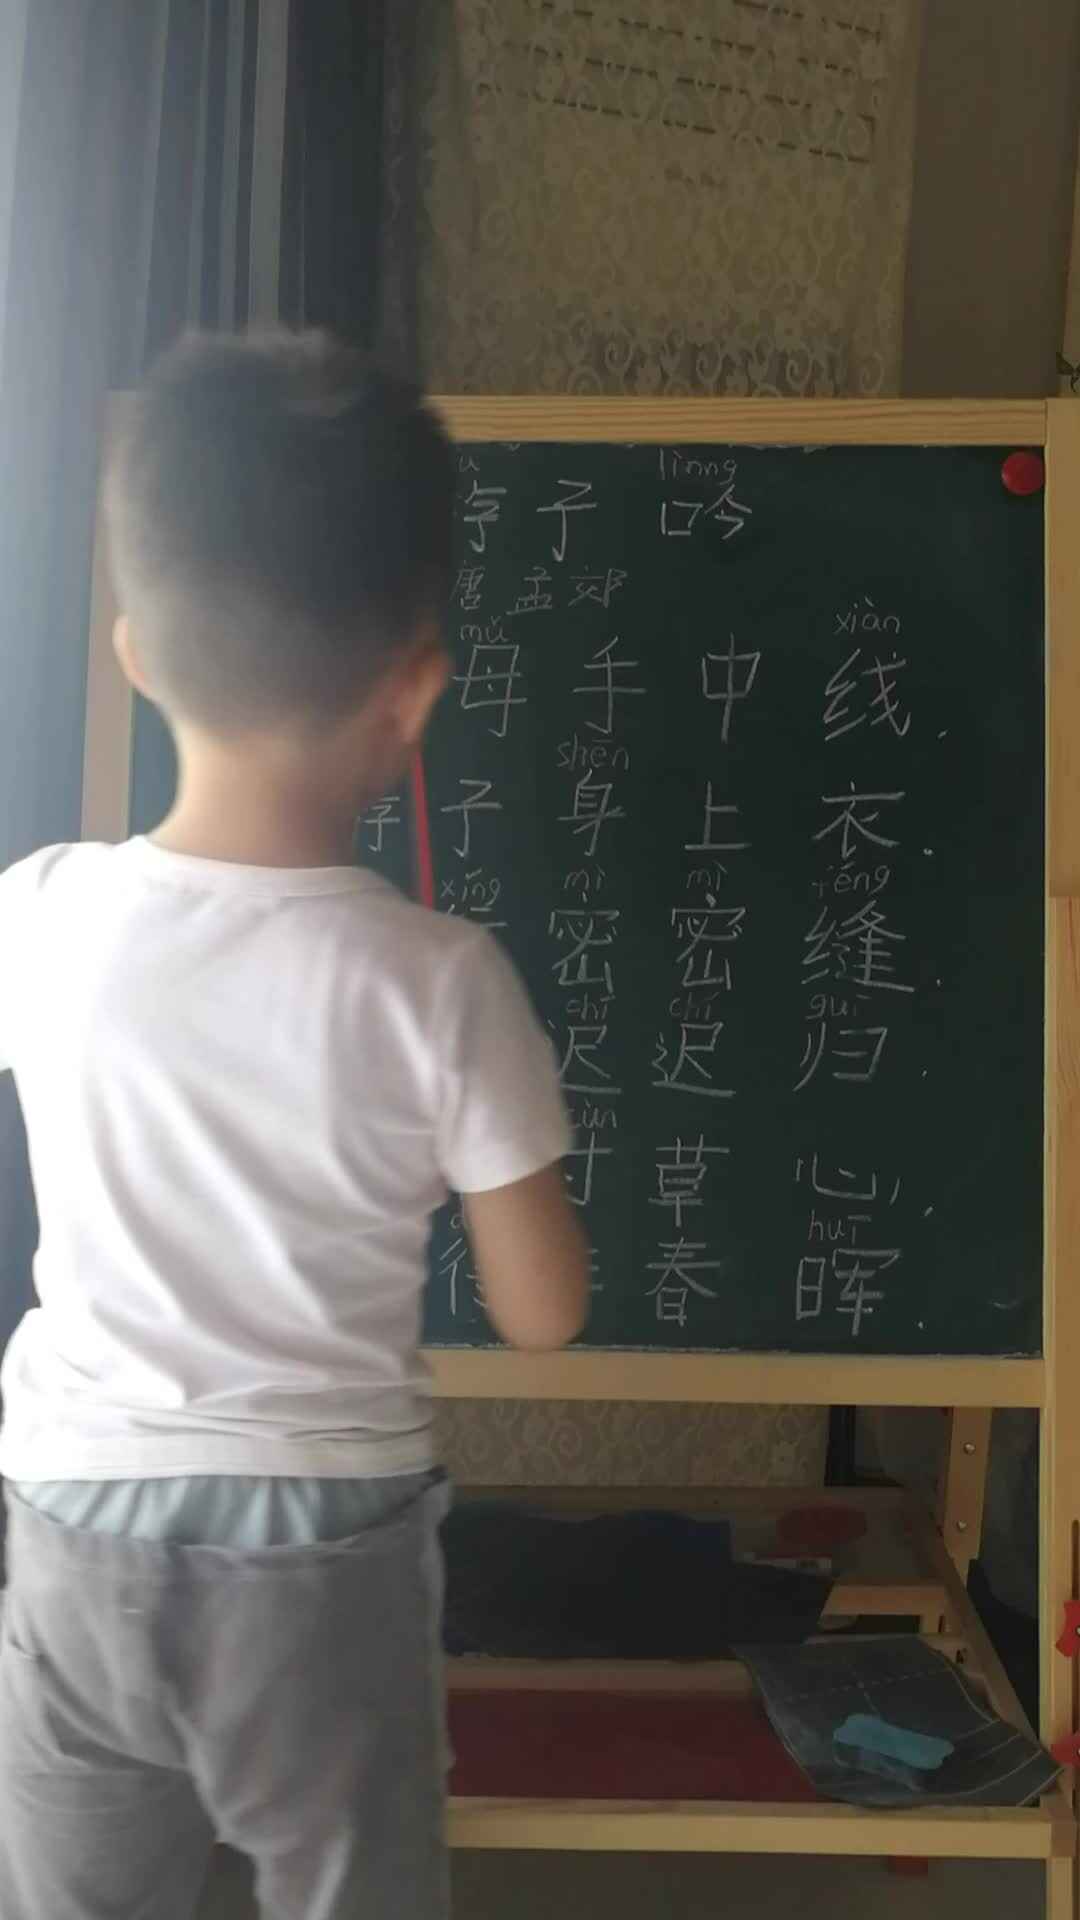 lìnng
子 吟
唐 孟郊
mǔ xiàn
母 手 中 线，
shēn
子 身 上 衣。
xíng mì mì féng
密 密 缝，
chí chí guī
迟 迟 归。
cùn
寸 草 心，
huī
春 晖。